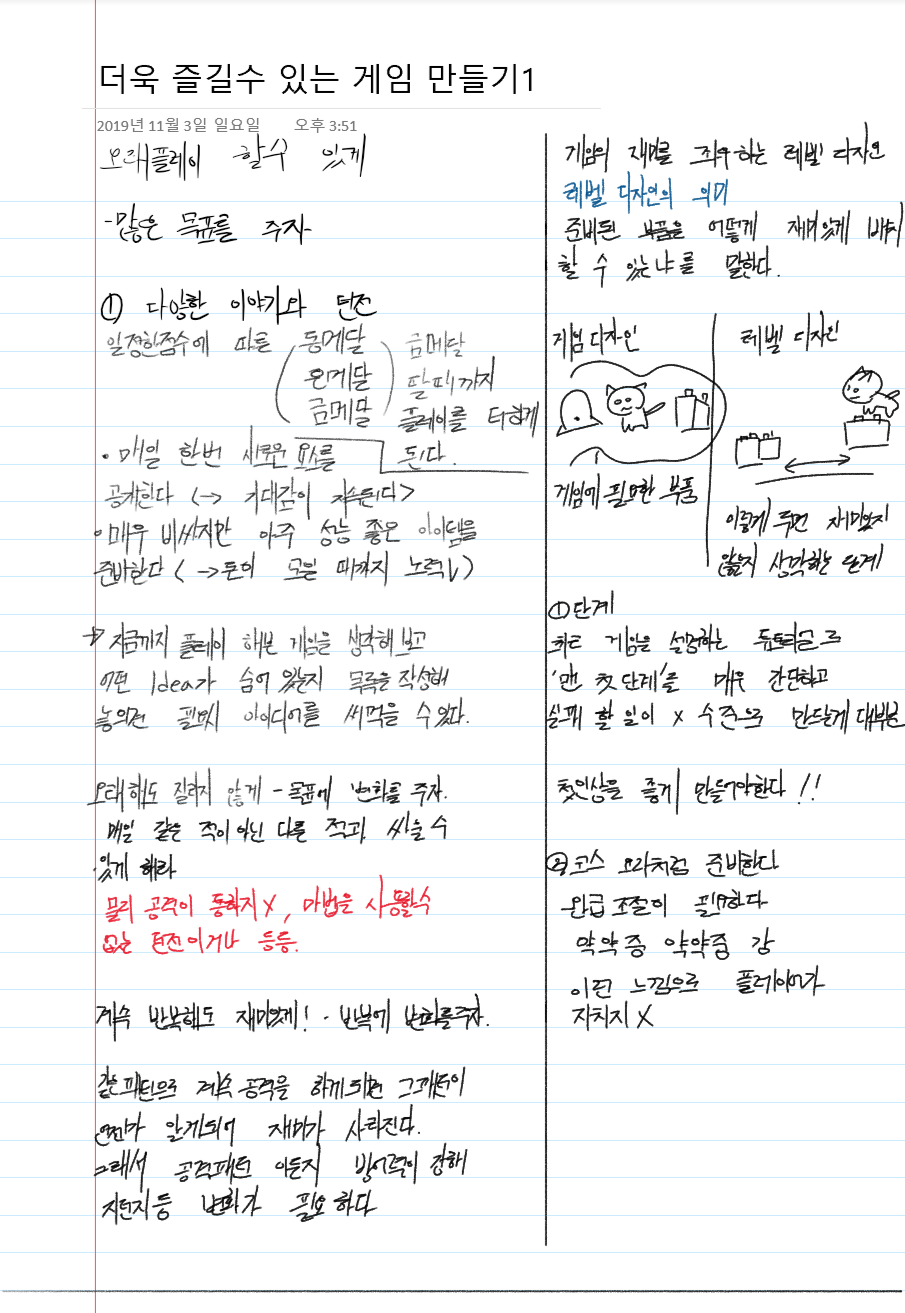 더욱 즐길수 있는 게임 만들기1
2019년 11월 3일 일요일 오후 3:51
오래플레이 할수 있게
-많은 목표를 주자
① 다양한 이야기와 던전
일정한점수에 따른 동메달
은메달
금메달
금메달
딸때까지
플레이를 더하게
된다.
• 매일 한번 새로운 요소를
공개한다 (→ 기대감이 지속된다>
• 매우 비싸지만 아주 성능 좋은 아이템을
준비한다 ( →돈이 모일 때까지 노력↓)
→ 지금까지 플레이 해본 게임을 생각해 보고
어떤 Idea가 숨어 있는지 목록을 작성해
놓으면 필시 아이디어를 써먹을 수 있다.
오래해도 질리지 않게 - 목표에 변화를 주자.
매일 같은 적이 아닌 다른 적과 싸울 수
있게 해라
물리 공격이 통하지 X, 마법을 사용할수
없는 던전이거나 등등.
계속 반복해도 재미있게! · 반복에 변화를주자.
같은패턴으로 계속 공격을 하게되면 그패턴이
언젠가 알게되어 재미가 사라진다.
그래서 공격패턴 이든지 방어력이 강해
지던지등 변화가 필요 하다
게임의 재미를 좌우하는 레벨 디자인
레벨 디자인의 의미
준비된 부품을 어떻게 재미있게 배치
할 수 있는냐를 말한다.
게임디자인
게임에 필요한 부품
레벨 디자인
이렇게 두면 재미있지
않을지 생각하는 단계
①단계
최근 게임을 설명하는 튜토리얼로
'맨 첫 단계'를 매우 간단하고
실패 할 일이 X 수준으로 만든게 대부분
첫인상을 좋게 만들어야한다!!
②코스 요리처럼 준비한다
완급 조절이 필요하다
약약중 약약중 강
이런 느낌으로 플레이어가
지치지 X